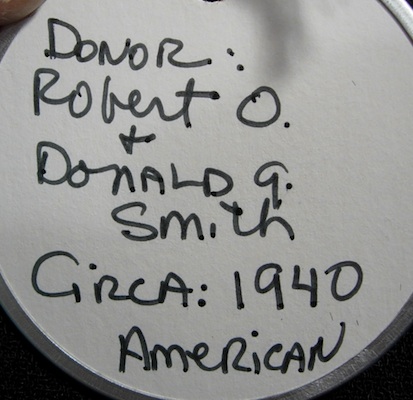 DONOR:
Robert O.
+
DONALD G.
Smith
CIRCA: 1940
AMERICAN